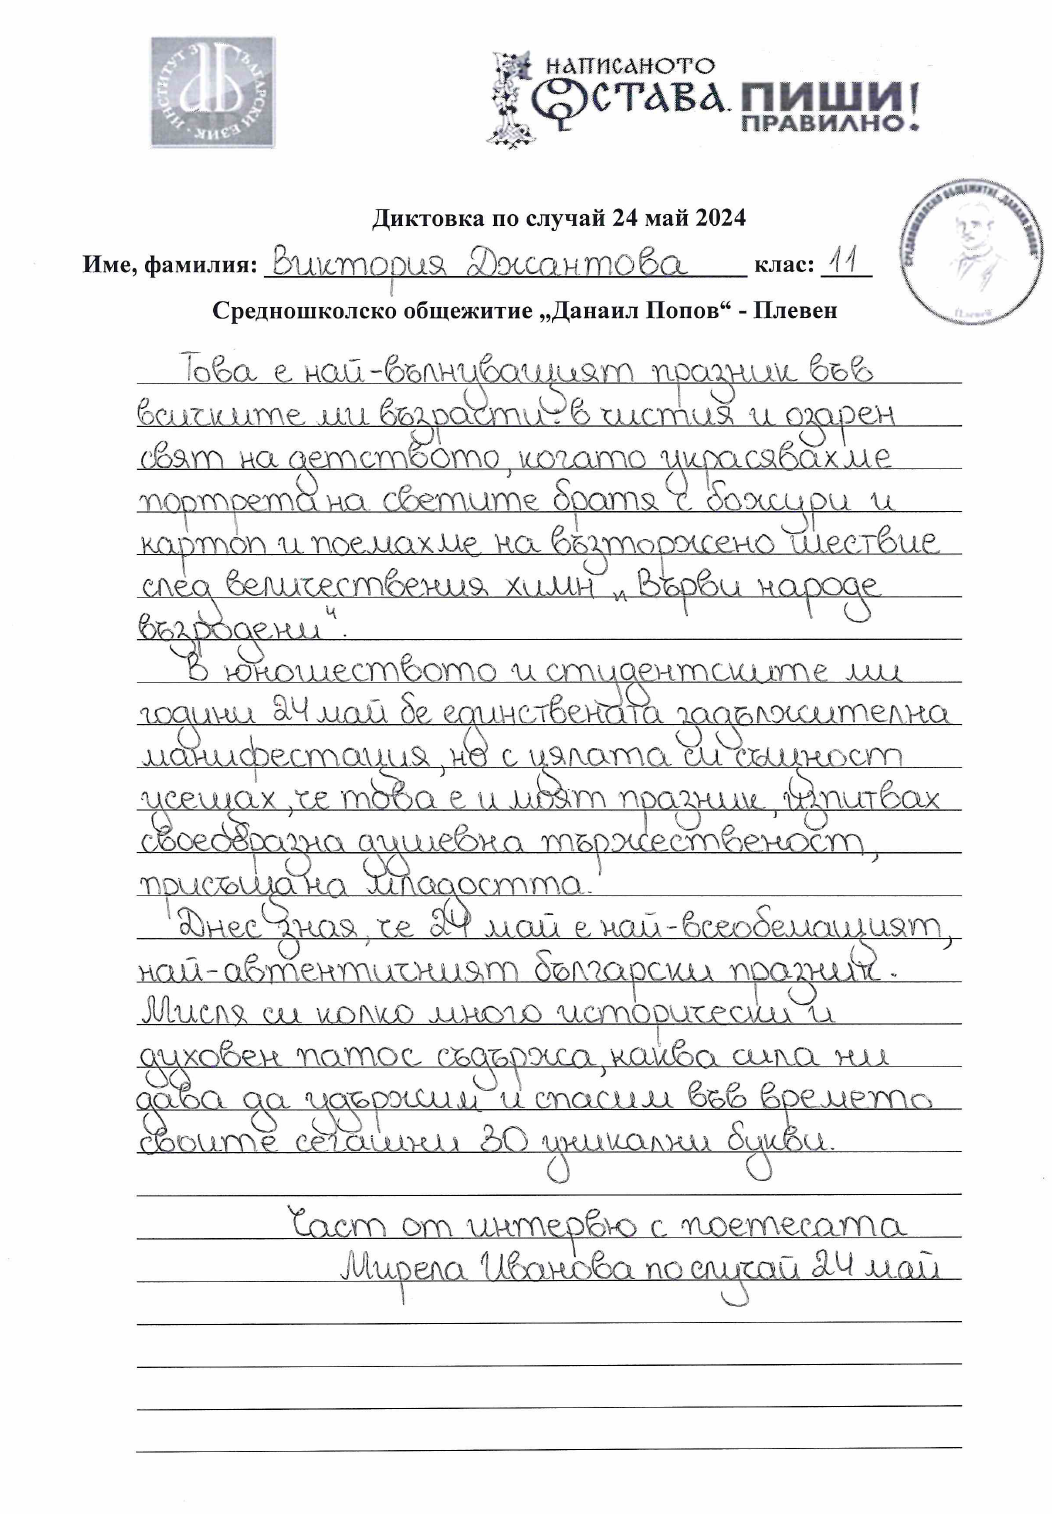 ИНСТИТУТ ЗА БЪЛГАРСКИ ЕЗИК
НАПИСАНОТО
ОСТАВА. ПИШИ
ПРАВИЛНО!
СРЕДНОШКОЛСКО ОБЩЕЖИТИЕ „ДАНАИЛ ПОПОВ“
Плевен
Диктовка по случай 24 май 2024
Име, фамилия: Виктория Джантова клас: 11
Средношколско общежитие „Данаил Попов“ - Плевен
Това е най-вълнуващият празник във
всичките ми възрасти: в чистия и озарен
свят на детството, когато украсявахме
портрета на светите братя с божури и
картоп и поемахме на възторжено шествие
след величествения химн „Върви народе
възродени".
В юношеството и студентските ми
години 24 май бе единствената задължителна
манифестация, но с цялата си същност
усещах, че това е и моят празник, изпитвах
своеобразна душевна тържественост,
присъща на младостта.
Днес зная, че 24 май е най-всеобемащият,
най-автентичният български празник.
Мисля си колко много исторически и
духовен патос съдържа, каква сила ни
дава да удържим и спасим във времето
своите сегашни 30 уникални букви.
Част от интервю с поетесата
Мирела Иванова по случай 24 май